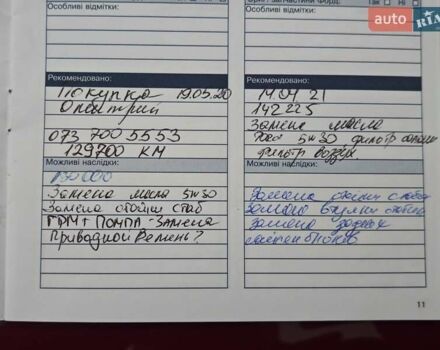 Особливі відмітки:
Рекомендовано:
Покупка 19.05.20
Дмитрий
073 700 5553
129700 КМ
Можливі наслідки:
130000
Замена масла 5w30
Замена стойки стаб
ГРМ + ПОМПА - Замена
Приводной Ремень?
Так Ні
Особливі відмітки:
Рекомендовано:
14.04 21
142225
Замена масла
5w30 фильтр
фильтр воздух
Можливі наслідки:
Замена стойки стаб
Замена втулки стабил
Замена задних
11
auto RIA